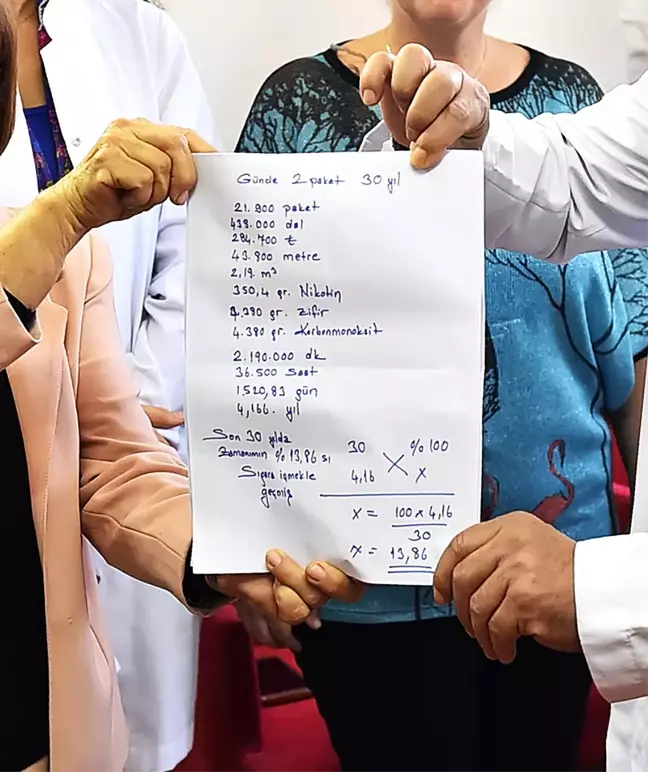 Günde 2 paket 30 yıl
21.900 paket
438.000 dal
284.700 ₺
43.800 metre
2,19 m³
350,4 gr. Nikotin
4.380 gr. Zifir
4.380 gr. Karbonmonoksit
2.190.000 dk
36.500 saat
1520,83 gün
4,166. yıl
Son 30 yılda
Zamanımın %13,86 sı
Sigara içmekle
geçmiş
30 %100
4,16 x
x = 100 x 4,16
30
x = 13,86